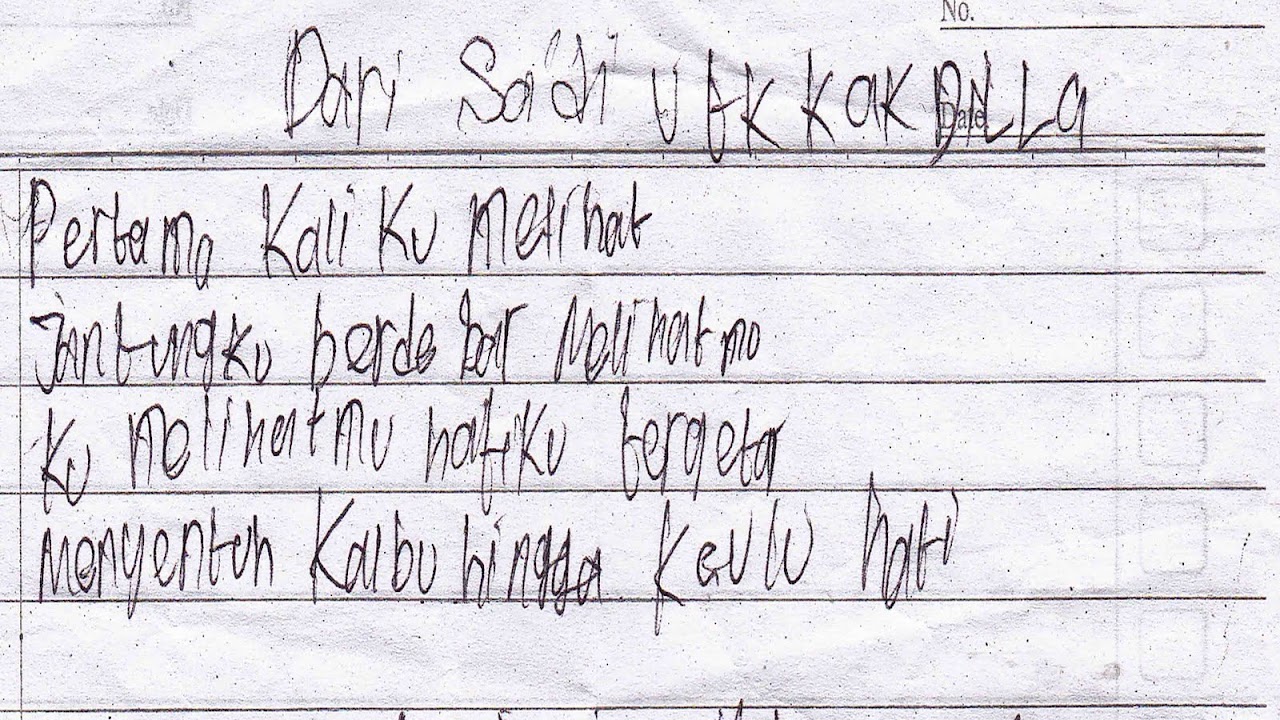 No.
Date
Dari Saidi utk kak DiLLa
Pertama kali ku melihat
Jantungku berdebar Melihatmu
ku melihatmu hatiku tergetar
Menyentuh kalbu hingga keulu hati